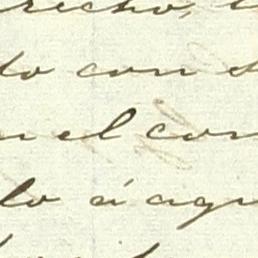 recho,
do con
n el con
lo á aqu